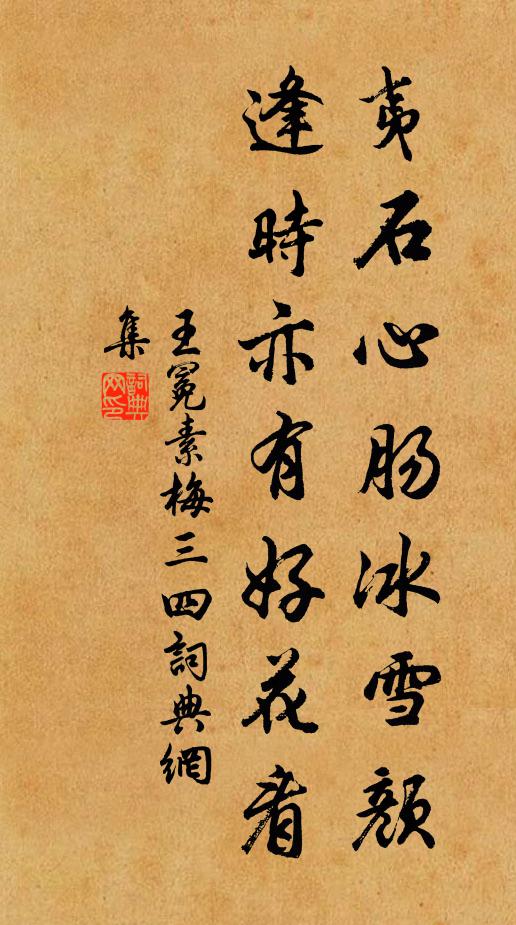 夷石心肠冰雪颜
逢時亦有好花看
王冕素梅三四詞典網
集
詞典
网印